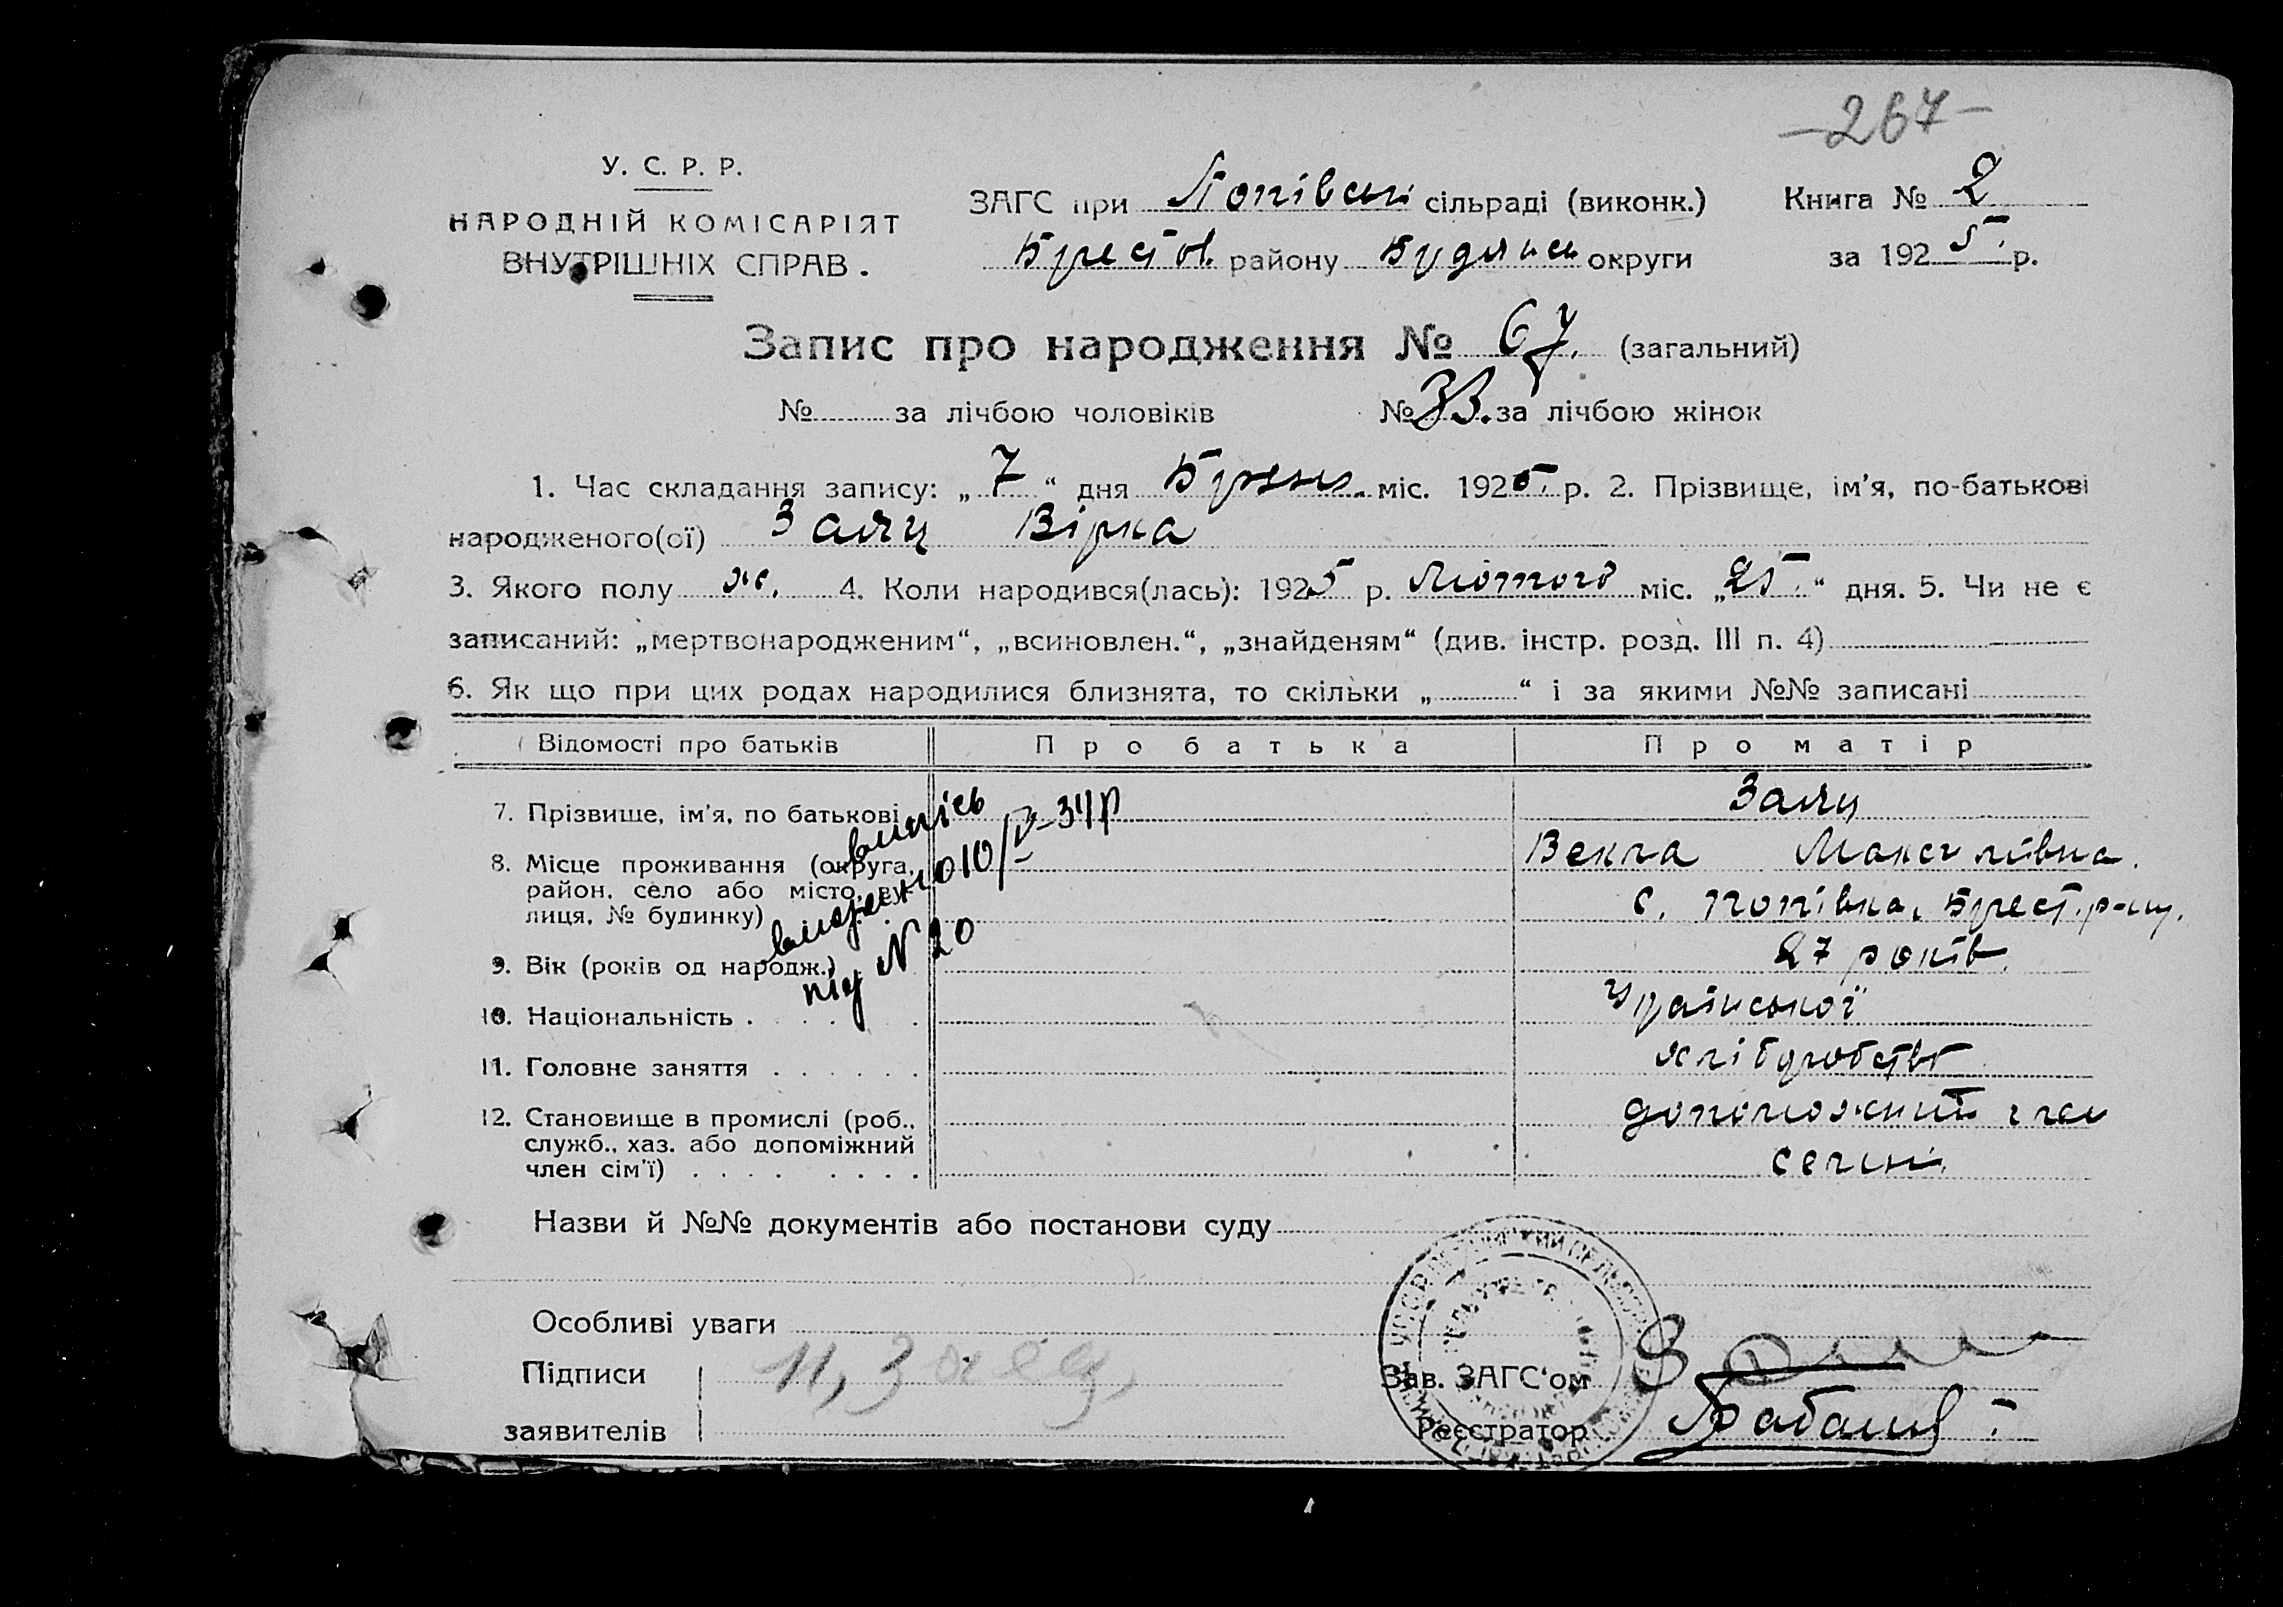 -267-
У. С. Р. Р.
НАРОДНІЙ КОМІСАРІЯТ
ВНУТРІШНІХ СПРАВ.
ЗАГС при Попівські сільраді (виконк.) Книга № 2
Брестов. району округи за 1925 р.
Запис про народження № 67. (загальний)
№ за лічбою чоловіків № 33. за лічбою жінок
1. Час складання запису: „7“ дня міс. 1925. р. 2. Прізвище, ім'я, по-батькові
народженого(ої) Заяц Вірка
3. Якого полу ж. 4. Коли народився(лась): 1925 р. Лютого міс. „25.“ дня. 5. Чи не є
записаний: „мертвонародженим“, „всиновлен.“, „знайденям“ (див. інстр. розд. III п. 4)
6. Як що при цих родах народилися близнята, то скільки „ “ і за якими №№ записані
Відомості про батьків Про батька Про матір
7. Прізвище, ім'я, по батькові Заяц
8. Місце проживання (округа, Векла
район, село або місто, ву-
лиця, № будинку) с. Попівка, Брест. р-ну.
9. Вік (років од народж.) 27 років
10. Національність . Української
11. Головне заняття . . . . . . хліборобство
12. Становище в промислі (роб., допоможний член
служб., хаз. або допоміжний
член сім'ї) . . . . . . . . семьи.
випись
10/V-34р
під № 20
Назви й №№ документів або постанови суду
Особливі уваги
Підписи
заявителів
Зав. ЗАГС'ом
Реєстратор